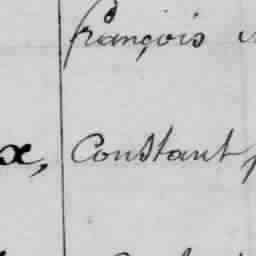 françois
x, Constant